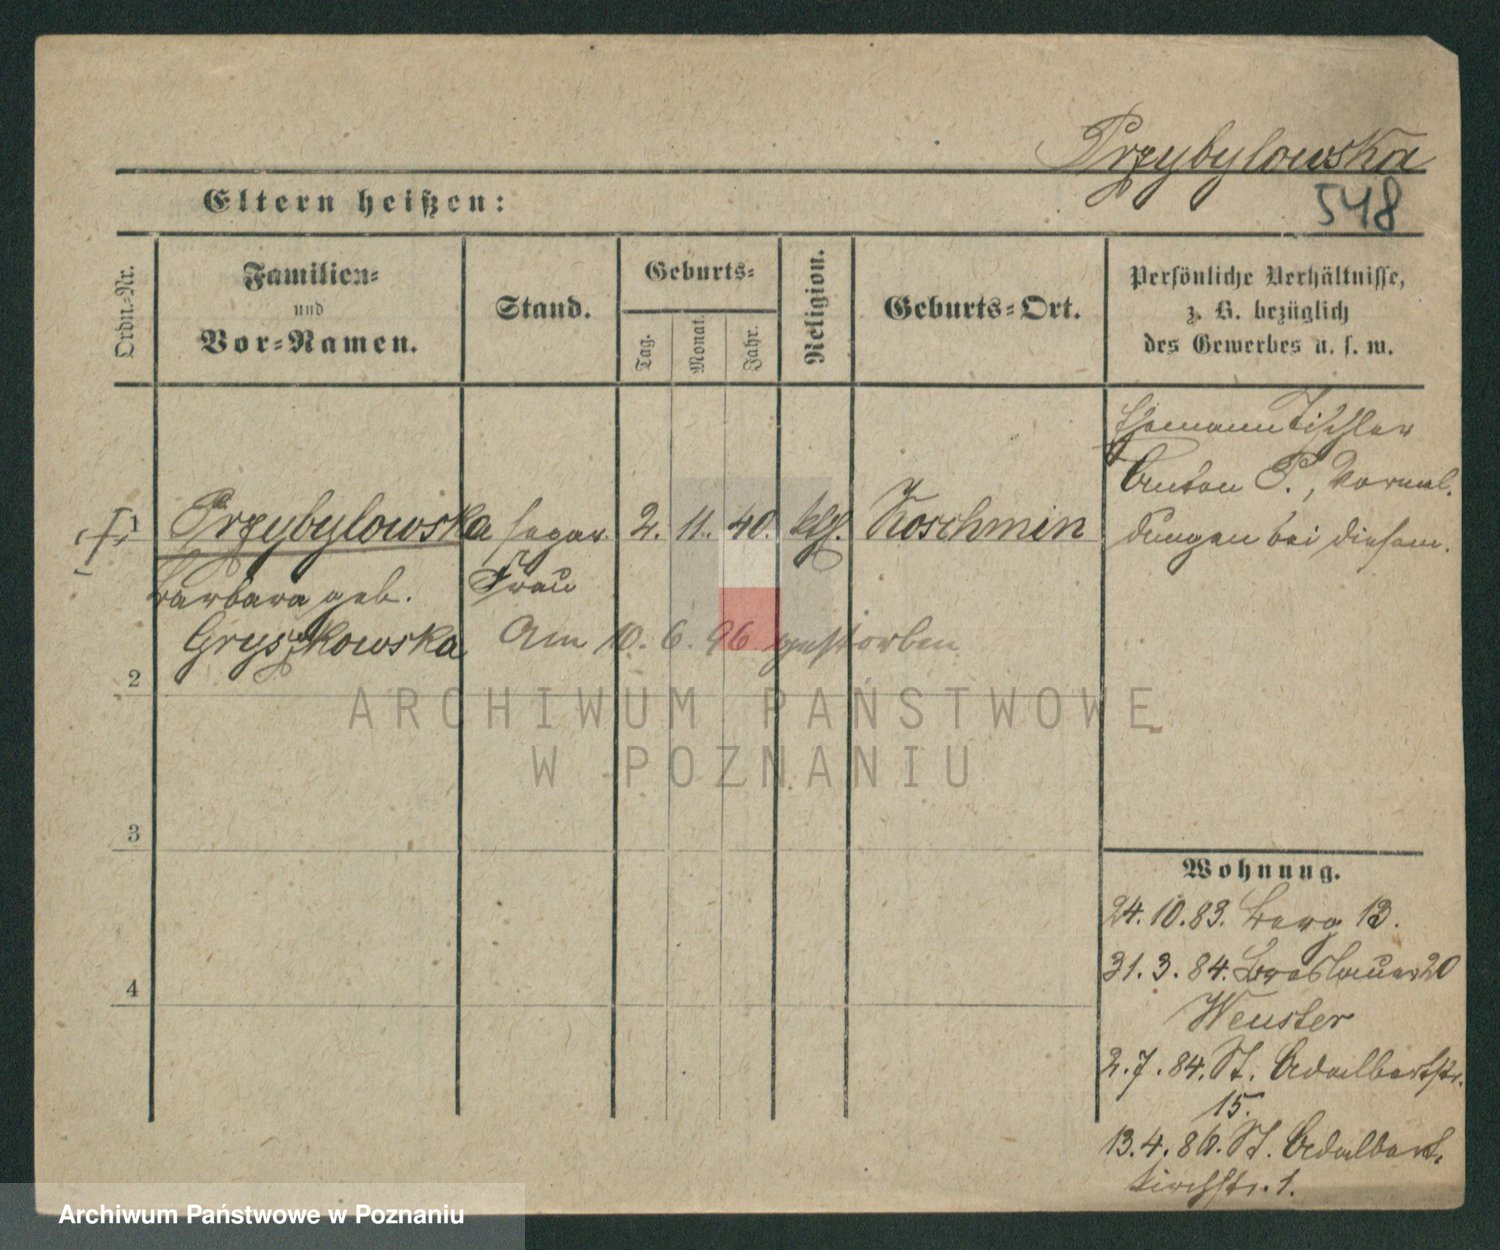 Przybylowska
548
Eltern heißen:
Ordn.-Nr.
Familien-
und
Vor-Namen.
Stand.
Geburts-
Tag.
Monat.
Jahr.
Religion.
Geburts-Ort.
Persönliche Verhältnisse,
z. B. bezüglich
des Gewerbes u. s. w.
Ehemann Tischler
Anton P., Vormel-
dungen bei diesem.
1 Przybylowska separ. 2. 11. 40. klg. Koschmin
Barbara geb. Frau
Gryszkowska Am 10. 6. 96 gestorben
2
3
4
Wohnung.
24. 10. 83. Berg 13.
31. 3. 84. Breslauer 20
Wenster
2. 7. 84. St. Adalbertstr.
15.
13. 4. 86. St. Adalbert-
kirchstr. 1.
ARCHIWUM PAŃSTWOWE
W POZNANIU
Archiwum Państwowe w Poznaniu